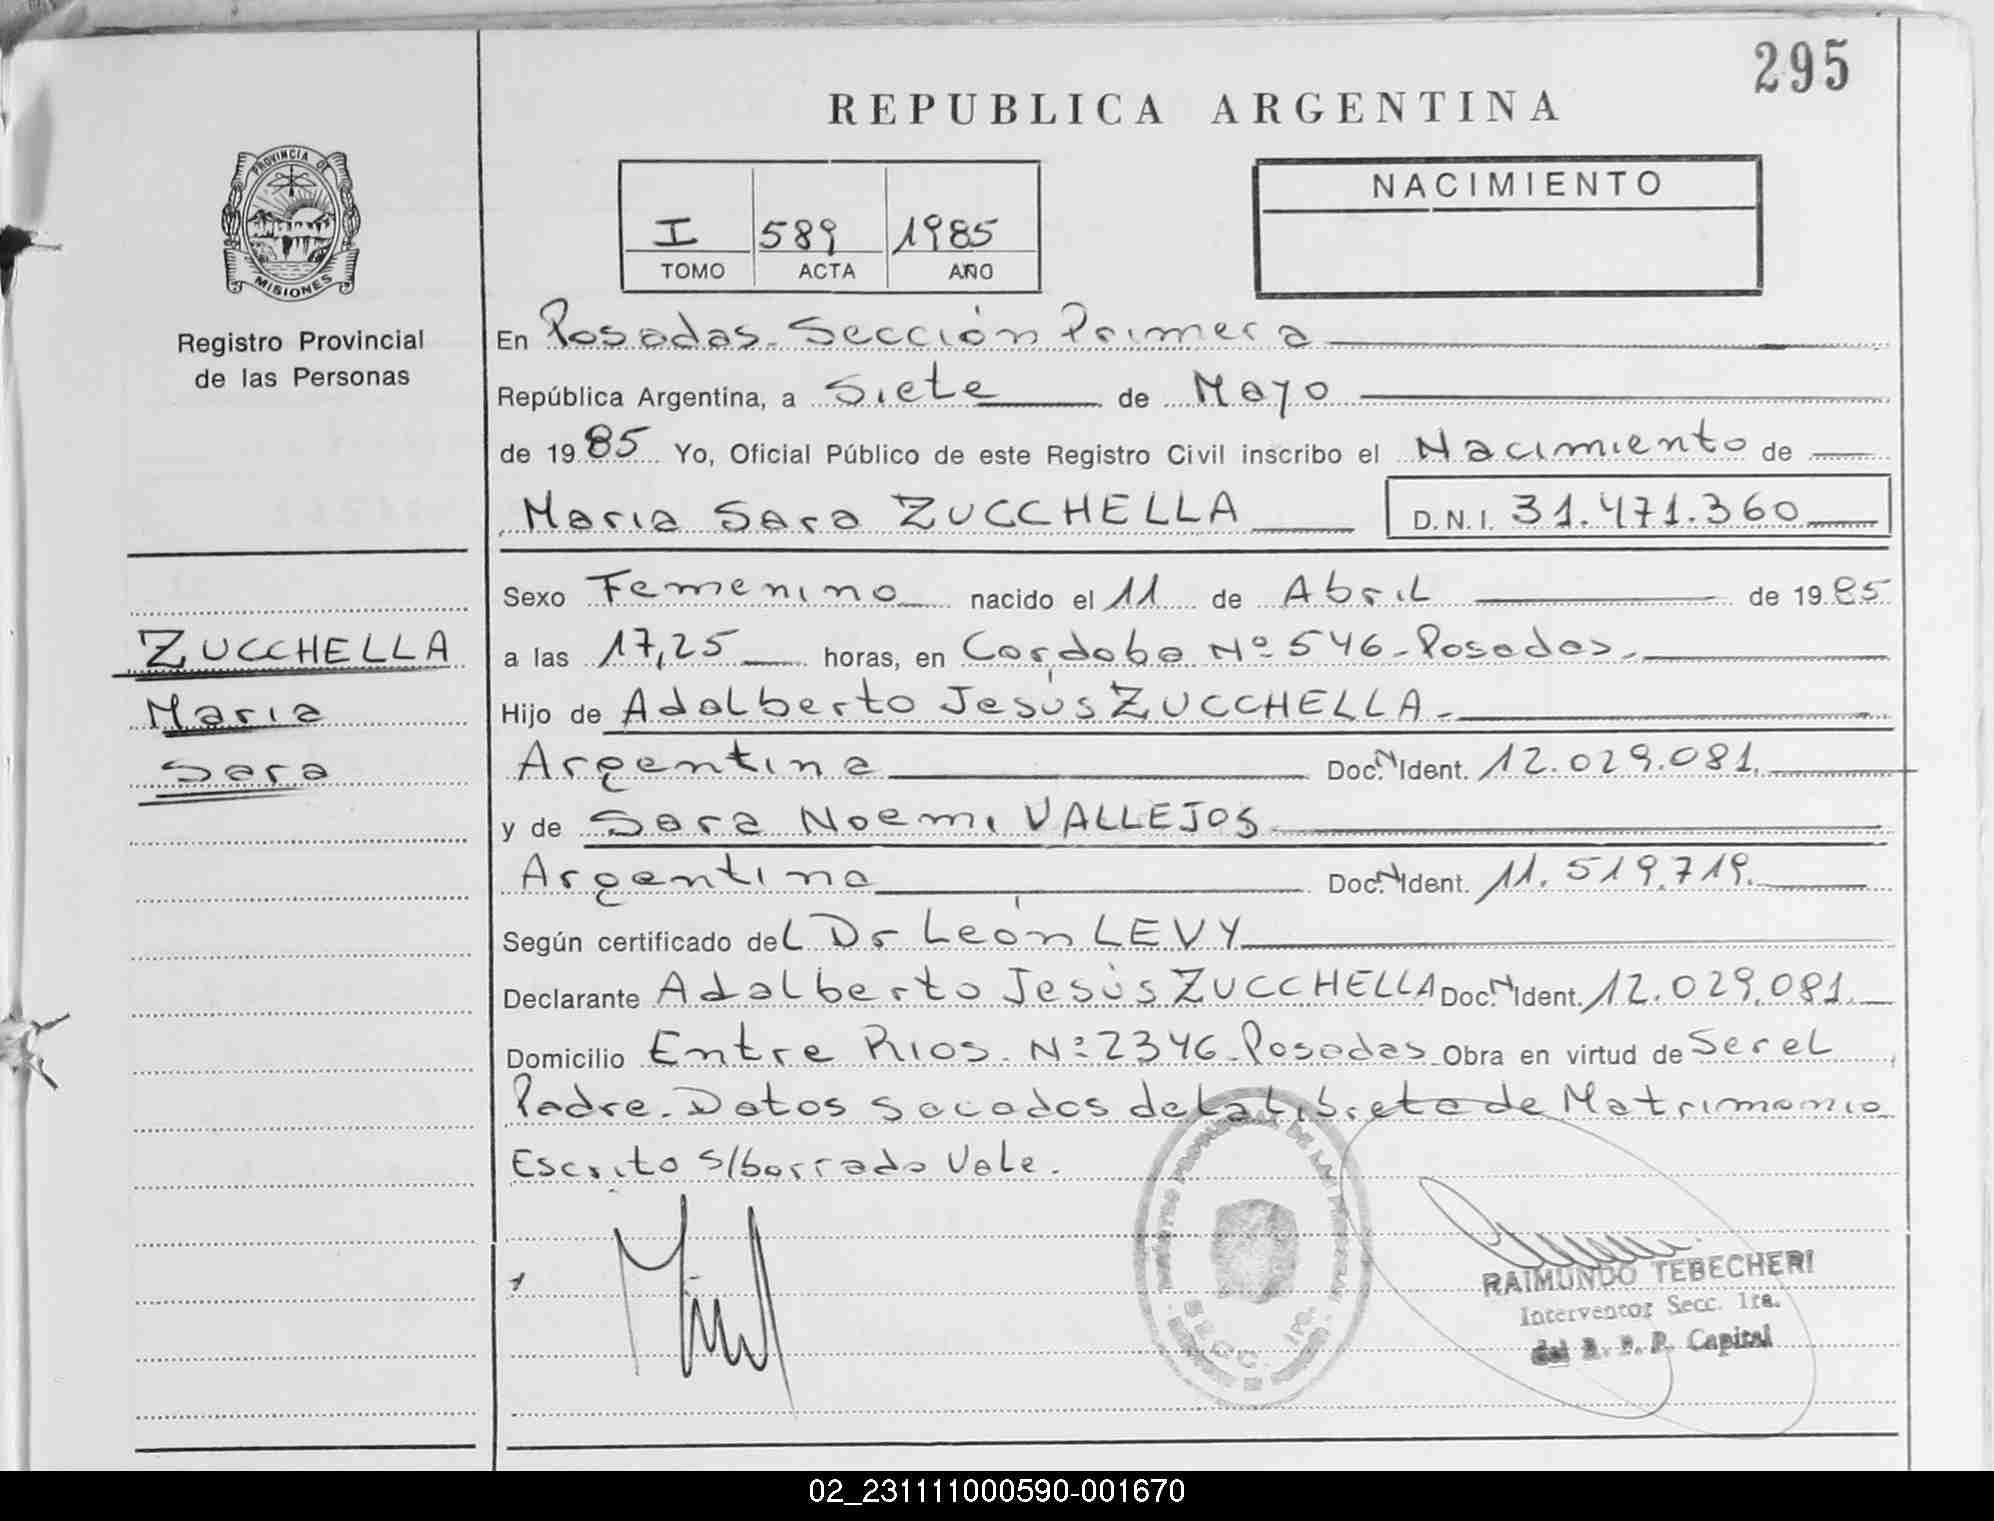 295
REPUBLICA ARGENTINA
PROVINCIA DE
MISIONES
Registro Provincial
de las Personas
I 589 1985
TOMO ACTA AÑO
NACIMIENTO
En Posadas. Sección Primera
República Argentina, a Siete de Mayo
de 1985 Yo, Oficial Público de este Registro Civil inscribo el Nacimiento de
Maria Sara ZUCCHELLA D.N.I. 31.471.360
Sexo Femenino nacido el 11 de Abril de 1985
ZUCCHELLA
Maria
Sara
a las 17,25 horas, en Cordoba Nº 546 - Posadas.
Hijo de Adalberto Jesús ZUCCHELLA.
Argentina Doc. N Ident. 12.029.081.
y de Sara Noemi VALLEJOS
Argentina Doc. N Ident. 11.519.719.
Según certificado del Dr León LEVY
Declarante Adalberto Jesús ZUCCHELLA Doc. N Ident. 12.029.081.
Domicilio Entre Rios. Nº 2346 - Posadas Obra en virtud de Ser el
Padre. Datos sacados de la Libreta de Matrimonio
Escrito s/borrado Vale.
SECC. 1ra.
RAIMUNDO TEBECHERI
Interventor Secc. 1ra.
del R. P. P. Capital
02_231111000590-001670